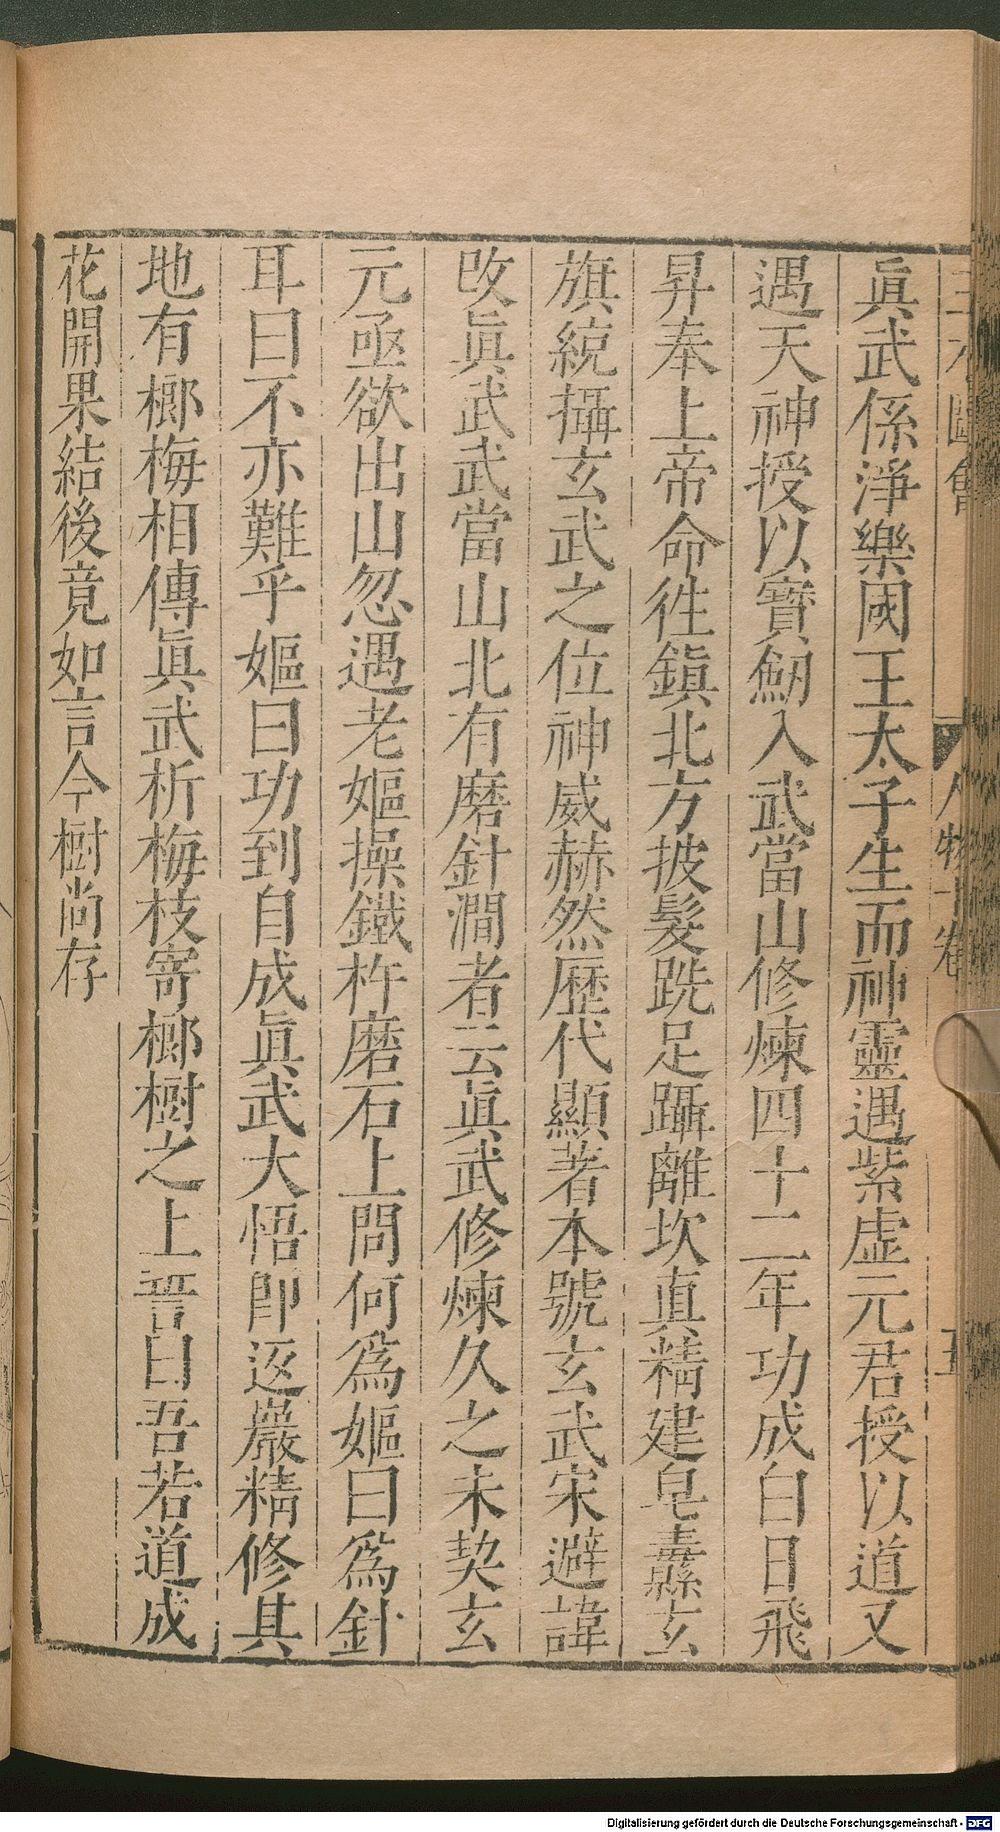 三才圖會 人物十卷 五
眞武係淨樂國王太子生而神靈遇紫虛元君授以道又
遇天神授以寶劒入武當山修煉四十二年功成白日飛
昇奉上帝命徃鎭北方披髮跣足躡離坎真精建皂纛玄
旗統攝玄武之位神威赫然歷代顯著本號玄武宋避諱
改眞武武當山北有磨針澗者云眞武修煉久之未契玄
元亟欲出山忽遇老嫗操鐵杵磨石上問何爲嫗曰爲針
耳曰不亦難乎嫗曰功到自成眞武大悟卽返巖精修其
地有榔梅相傳眞武折梅枝寄榔樹之上誓曰吾若道成
花開果結後竟如言今樹尚存
Digitalisierung gefördert durch die Deutsche Forschungsgemeinschaft - DFG